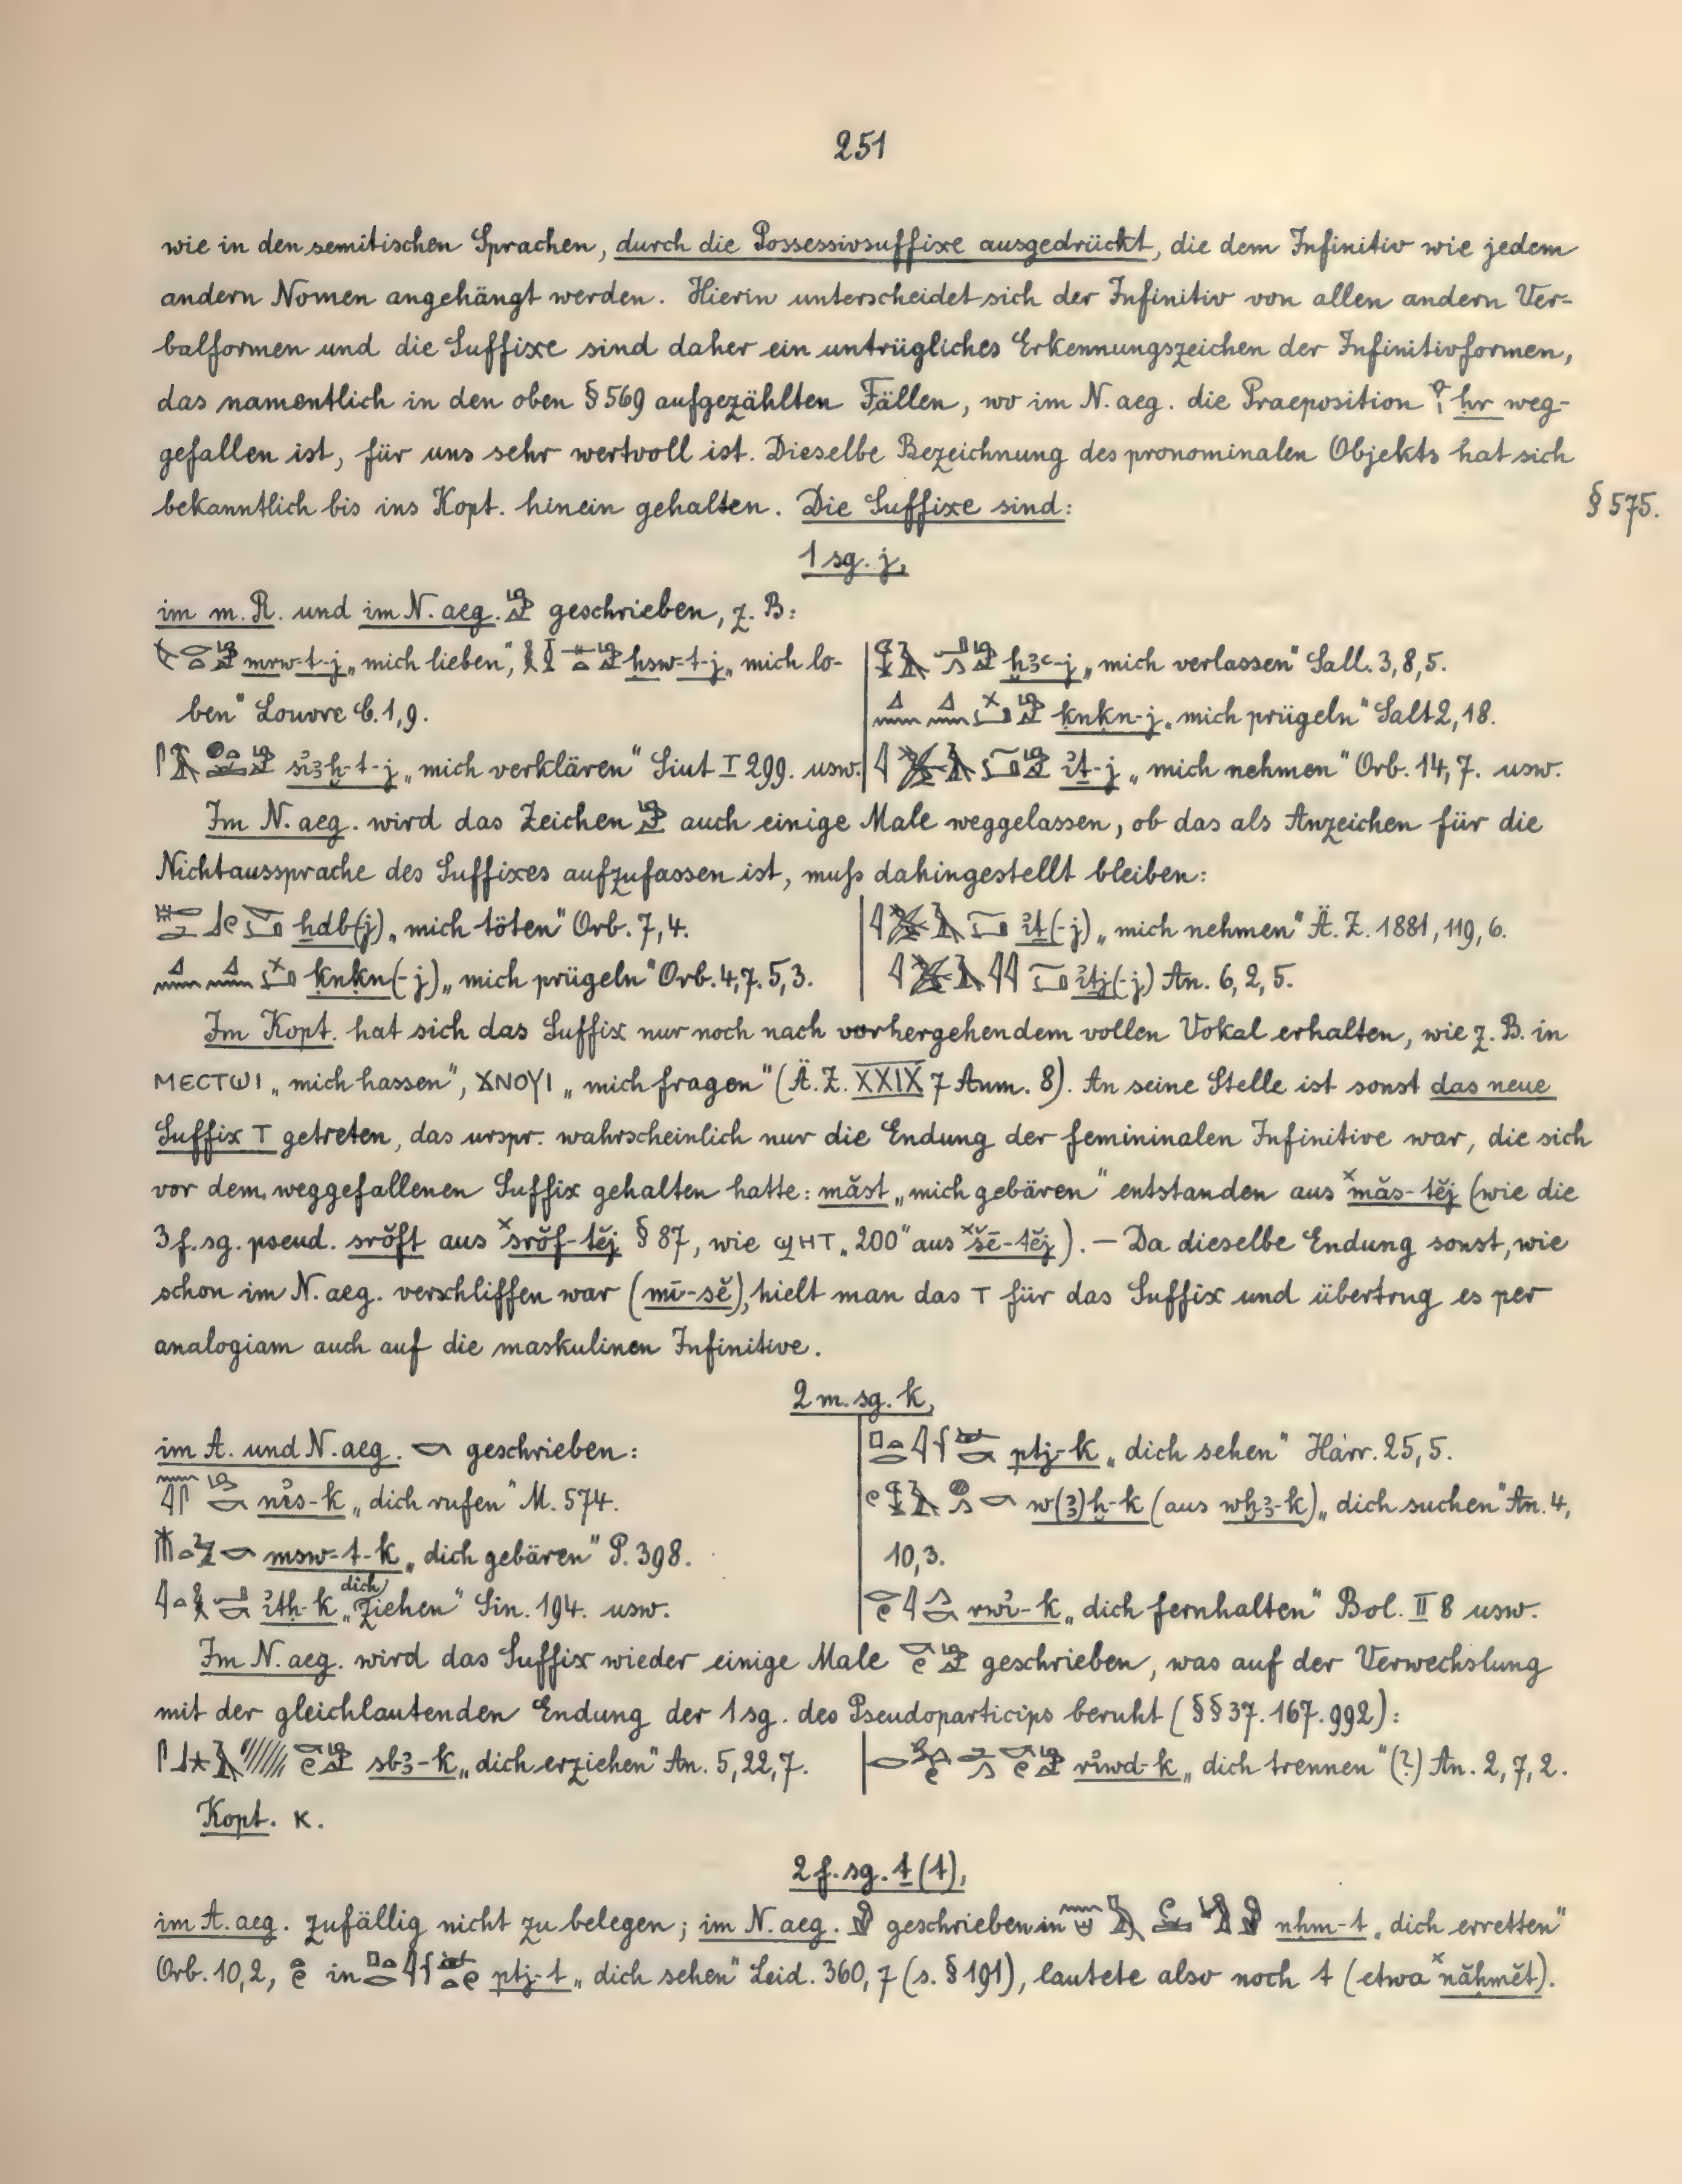 251
wie in den semitischen Sprachen, durch die Possessivsuffixe ausgedrückt, die dem Infinitiv wie jedem
andern Nomen angehängt werden. Hierin unterscheidet sich der Infinitiv von allen andern Ver-
balformen und die Suffixe sind daher ein untrügliches Erkennungszeichen der Infinitivformen,
das namentlich in den oben § 569 aufgezählten Fällen, wo im N. aeg. die Praeposition ḥr weg-
gefallen ist, für uns sehr wertvoll ist. Dieselbe Bezeichnung des pronominalen Objekts hat sich
bekanntlich bis ins Kopt. hinein gehalten. Die Suffixe sind:
§ 575.
1 sg. j,
im m. R. und im N. aeg. geschrieben, z. B:
mrw-t-j „mich lieben", ḥsw-t-j „mich lo-
ben" Louvre C. 1, 9.
sꞽꜣḫ-t-j „mich verklären" Siut I 299. usw.
ḫꜣꜥ-j „mich verlassen" Sall. 3, 8, 5.
ḳnḳn-j „mich prügeln" Salt 2, 18.
ꞽṯ-j „mich nehmen" Orb. 14, 7. usw.
Im N. aeg. wird das Zeichen auch einige Male weggelassen, ob das als Anzeichen für die
Nichtaussprache des Suffixes aufzufassen ist, muſs dahingestellt bleiben:
ḫdb(j) „mich töten" Orb. 7, 4.
ḳnḳn(-j) „mich prügeln" Orb. 4, 7. 5, 3.
ꞽṯ(-j) „mich nehmen" Ä. Z. 1881, 119, 6.
ꞽṯj(-j) An. 6, 2, 5.
Im Kopt. hat sich das Suffix nur noch nach vorhergehendem vollen Vokal erhalten, wie z. B. in
ⲘⲈⲤⲦⲰⲒ „mich hassen", ϪⲚⲞⲨⲒ „mich fragen" (Ä. Z. XXIX 7 Anm. 8). An seine Stelle ist sonst das neue
Suffix Ⲧ getreten, das urspr. wahrscheinlich nur die Endung der femininalen Infinitive war, die sich
vor dem weggefallenen Suffix gehalten hatte: măst „mich gebären" entstanden aus ˣmăs-tĕj (wie die
3 f. sg. pseud. srŏft aus ˣsrŏf-tĕj § 87, wie ϢⲎⲦ „200" aus ˣšē-tĕj). — Da dieselbe Endung sonst, wie
schon im N. aeg. verschliffen war (mī-sĕ), hielt man das Ⲧ für das Suffix und übertrug es per
analogiam auch auf die maskulinen Infinitive.
2 m. sg. k,
im A. und N. aeg. geschrieben:
nꞽs-k „dich rufen" M. 574.
msw-t-k „dich gebären" P. 398.
ꞽtḥ-k „dich ziehen" Sin. 194. usw.
ptj-k „dich sehen" Harr. 25, 5.
w(ꜣ)ḫ-k (aus wḫꜣ-k) „dich suchen" An. 4,
10, 3.
rwꞽ-k „dich fernhalten" Bol. II 8 usw.
Im N. aeg. wird das Suffix wieder einige Male geschrieben, was auf der Verwechslung
mit der gleichlautenden Endung der 1 sg. des Pseudoparticips beruht (§§ 37. 167. 992):
sbꜣ-k „dich erziehen" An. 5, 22, 7.
rꞽwd-k „dich trennen" (?) An. 2, 7, 2.
Kopt. ⲕ.
2 f. sg. ṯ (t),
im A. aeg. zufällig nicht zu belegen; im N. aeg. geschrieben in nḥm-t „dich erretten"
Orb. 10, 2, in ptj-t „dich sehen" Leid. 360, 7 (s. § 191), lautete also noch t (etwa ˣnăḥmĕt).